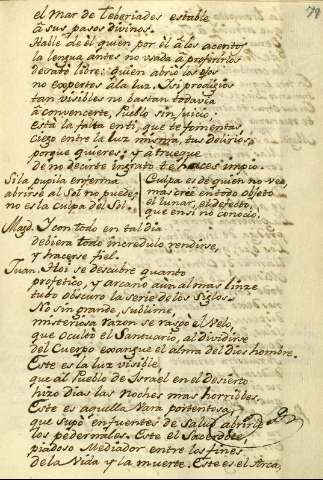 78
el Mar de Teberiades estable
à sus pasos divinos.
Hable de èl quien por èl â los acentos
la lengua antes no usada à proferirlos
desatò libre: quien abrio los ojos
no expertos âla luz. Y si prodigios
tan visibles no bastan todavia
â convencerte, Pueblo sin juicio:
està la falta enti, que te fomentas
ciego entre la luz misma, tus delirios,
porque quieres: y â trueque
de no decirte ingrato te haces impio.
Si la pupila enferma
abrirse al Sol no puede,
no es la culpa del Sol.
Culpa es de quien no vea,
mas cree en todo objeto
el lunar, el defecto,
que en si no conocio.
Magd. Y con todo en tal dia
debiera todo incredulo rendirse,
y hacerse fiel.
Juan. Hoi se descubre quanto
profetico, y arcano aun al mas linze
tubo obscuro la serie de los Siglos.
No sin grande, sublime,
misteriosa razon se rasgò el Velo,
que Ocultò el Santuario, al dividirse
del Cuerpo exangue el alma del Dios hombre.
Este es la luz visible,
que al Pueblo de Israel en el desierto
hizo dias las Noches mas horribles.
Este es aquella Vara portentosa,
que Supo en fuentes de Salud abrirle
los pedernales. Este el Sacerdote,
piadoso Mediador entre los fines
de la Vida y la muerte. Este es el Arca,